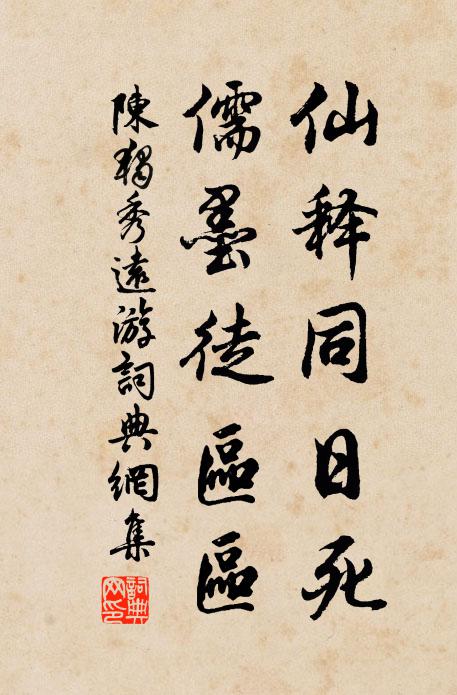 仙释同日死
儒墨徒區區
陳獨秀遠游詞典網集
詞典网印